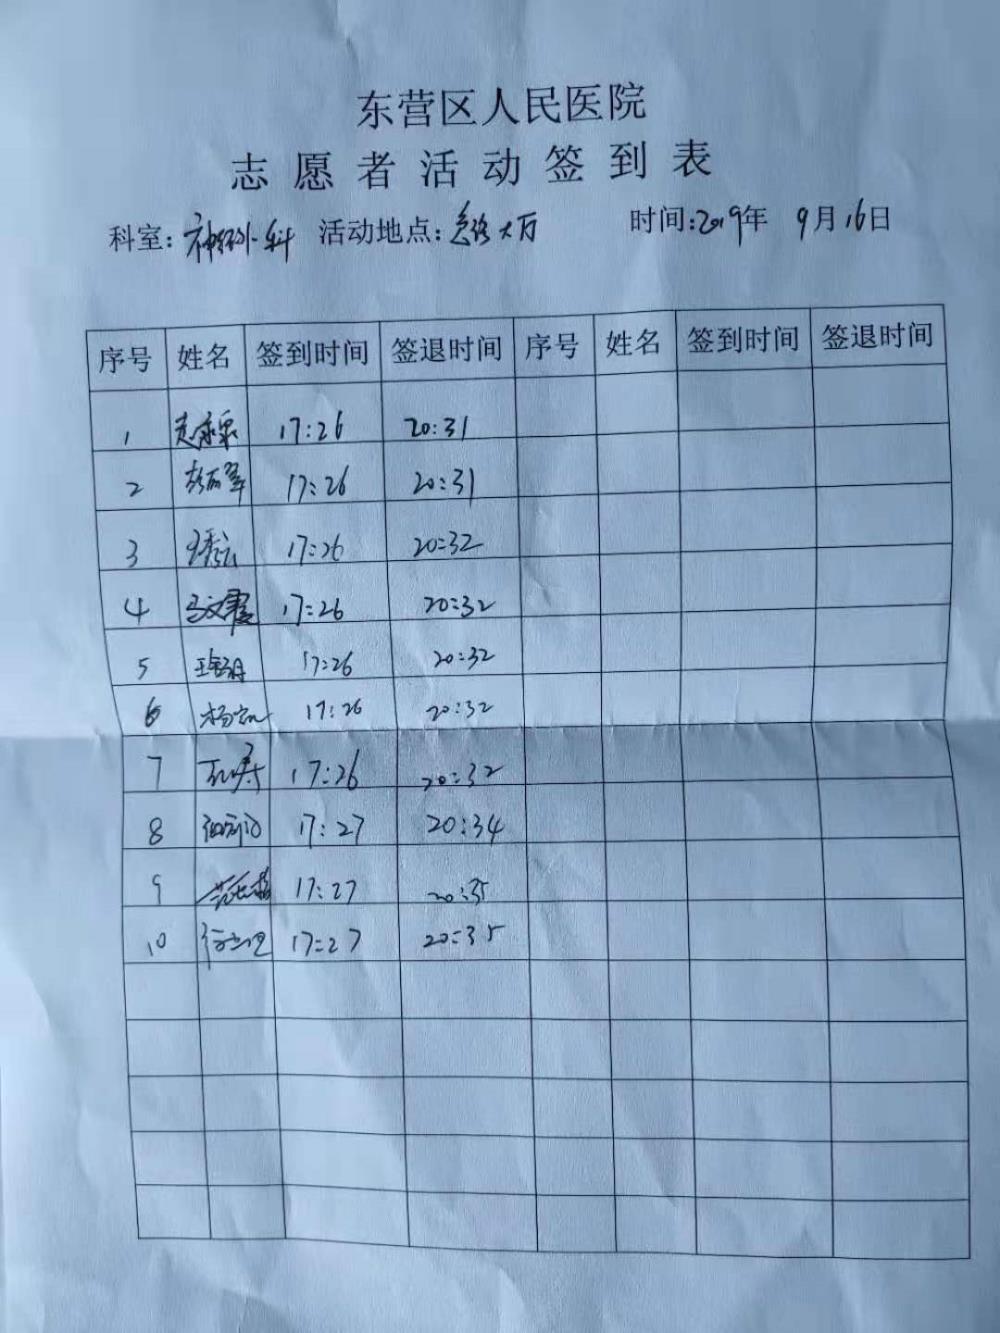 东营区人民医院
志愿者活动签到表
科室: 神经外科 活动地点: 急诊大厅 时间: 2019年 9月16日
序号 姓名 签到时间 签退时间 序号 姓名 签到时间 签退时间
1 17:26 20:31
2 17:26 20:31
3 17:26 20:32
4 马文霞 17:26 20:32
5 17:26 20:32
6 17:26 20:32
7 17:26 20:32
8 17:27 20:34
9 17:27 20:35
10 17:27 20:35